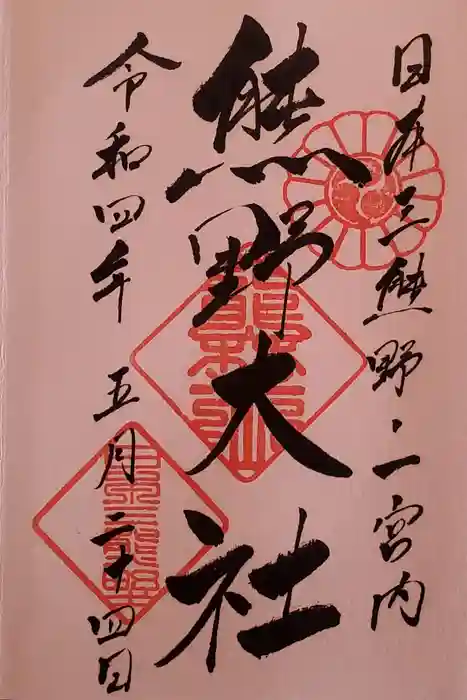 日本三熊野・一宮内
熊野大社
令和四年 五月二十四日